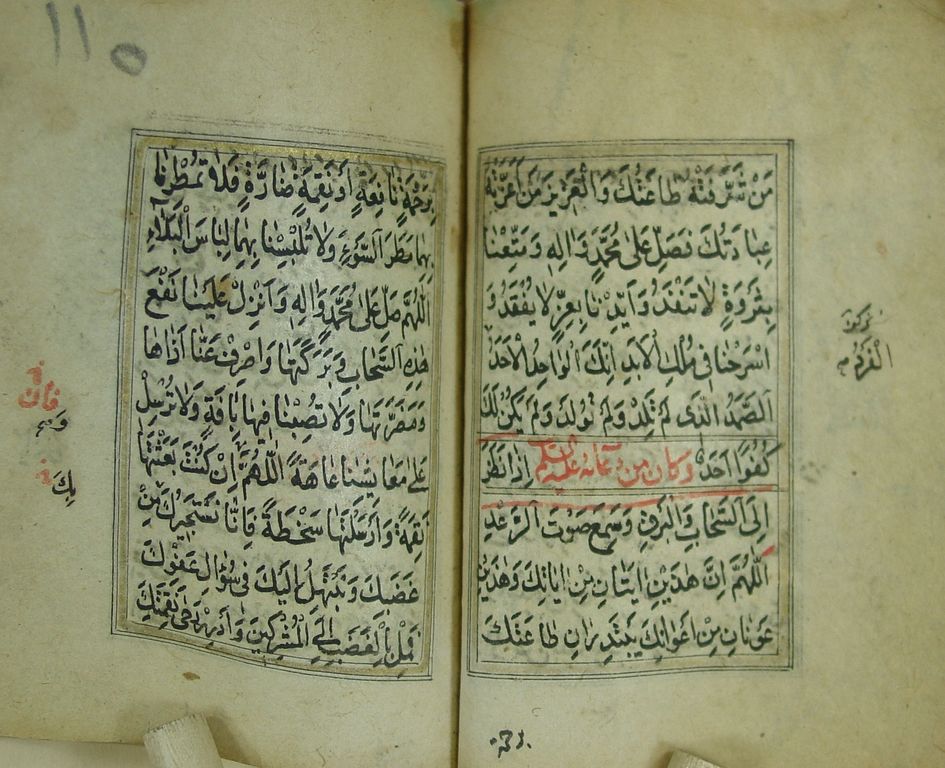 مَنْ شَرَّفَتْهُ طَاعَتُكَ وَالْعَزِيزَ مَنْ أَعَزَّتْهُ
عِبَادَتُكَ فَصَلِّ عَلَى مُحَمَّدٍ وَالِهِ وَمَتِّعْنَا
بِثَرْوَةٍ لَا تَنْفَدُ وَاَيِّدْنَا بِعِزٍّ لَا يُفْقَدُ وَ
اسْرَحْنَا فِى مُلْكِ الْاَبَدِ اِنَّكَ الْوَاحِدُ الْاَحَدُ
الصَّمَدُ الَّذِى لَمْ تَلِدْ وَلَمْ تُولَدْ وَلَمْ يَكُنْ لَكَ
كُفُوًا اَحَدٌ وكان من دعائه عليه السلم اِذَا نَظَرَ
اِلَى السَّحَابِ وَالْبَرْقِ وَسَمِعَ صَوْتَ الرَّعْدِ
اَللّٰهُمَّ اِنَّ هٰذَيْنِ ايَتَانِ مِنْ ايَاتِكَ وَهٰذَيْنِ
عَوْنَانِ مِنْ اَعْوَانِكَ يَبْتَدِرَانِ طَاعَتَكَ
١١٥
بِرَحْمَةٍ نَافِعَةٍ اَوْ نَقِمَةٍ ضَارَّةٍ فَلَا تُمْطِرْنَا
بِهِمَا مَطَرَ السَّوْءِ وَلَا تُلْبِسْنَا بِهِمَا لِبَاسَ الْبَلَاءِ
اَللّٰهُمَّ صَلِّ عَلَى مُحَمَّدٍ وَالِهِ وَاَنْزِلْ عَلَيْنَا نَفْعَ
هٰذِهِ السَّحَابِ وَبَرَكَتَهَا وَاصْرِفْ عَنَّا اَذَاهَا
وَمَضَرَّتَهَا وَلَا تُصِبْنَا فِيهَا بِافَةٍ وَلَا تُرْسِلْ
عَلَى مَعَايِشِنَا عَاهَةً اَللّٰهُمَّ اِنْ كُنْتَ بَعَثْتَهَا
نَقِمَةً وَاَرْسَلْتَهَا سَخْطَةً فَاِنَّا نَسْتَجِيرُكَ مِنْ
غَضَبِكَ وَنَبْتَهِلُ اِلَيْكَ فِى سُؤَالِ عَفْوِكَ
فَمِلْ بِالْغَضَبِ اِلَى الْمُشْرِكِينَ وَاَدِرْ رَحَى نَقِمَتِكَ